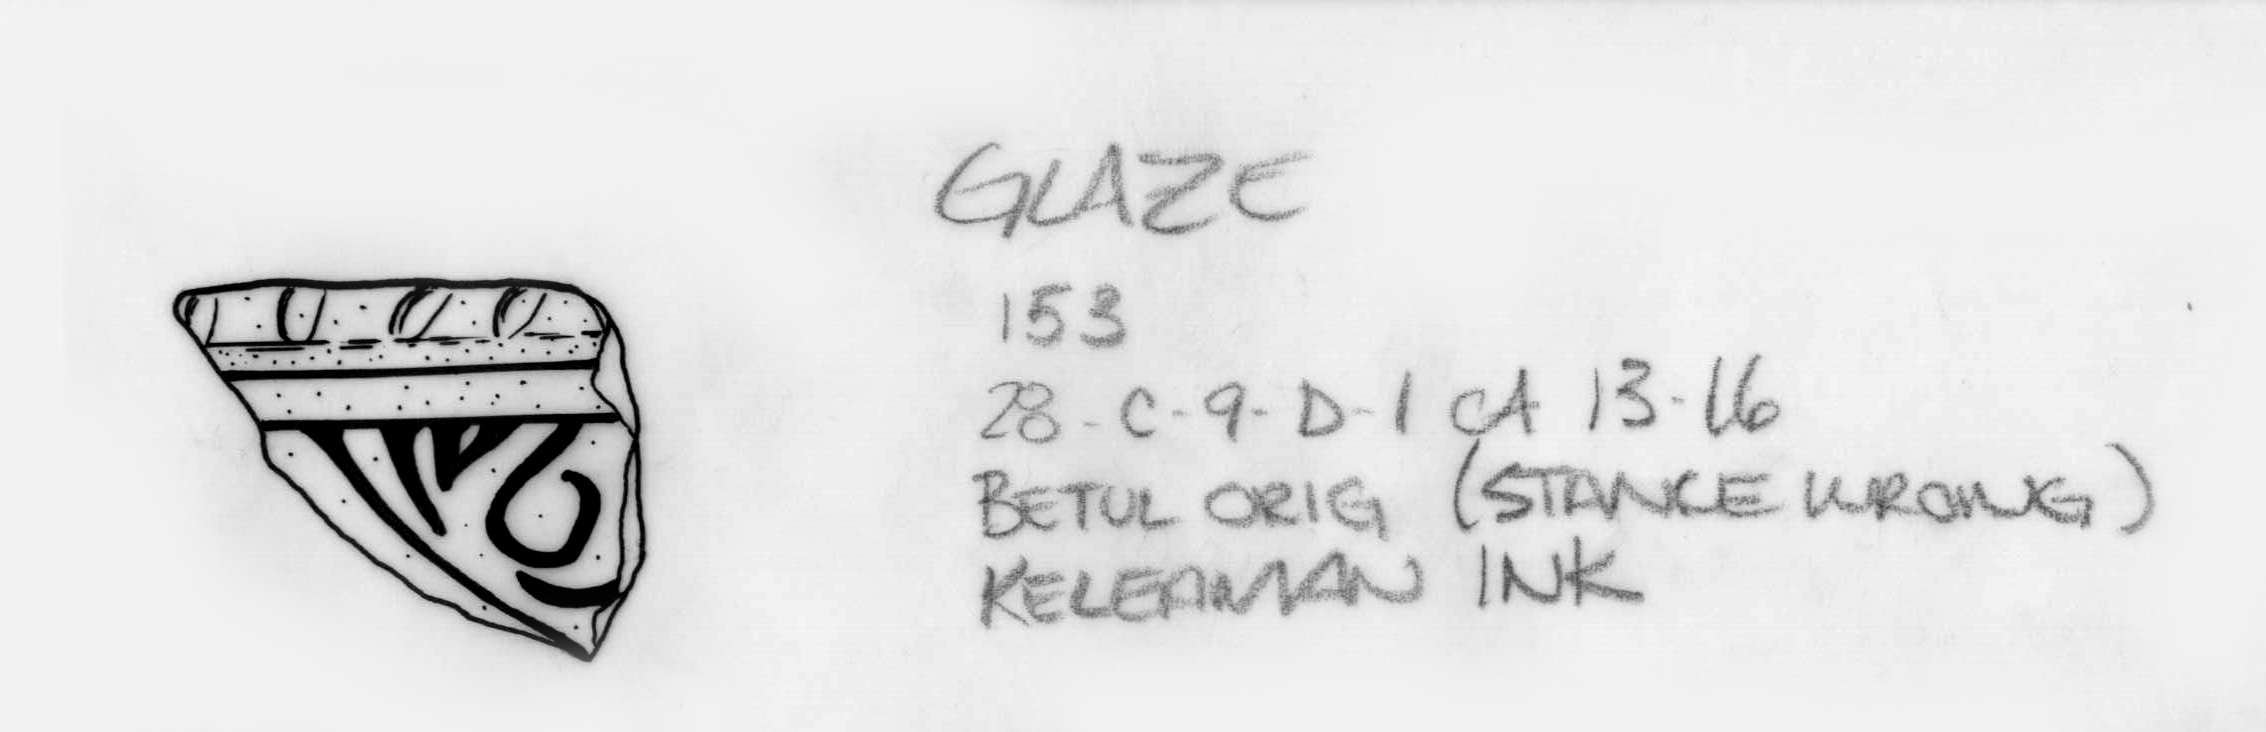 GLAZE
153
28-C-9-D-1 CA 13-16
BETUL ORIG (STANCE WRONG)
KELERMAN INK